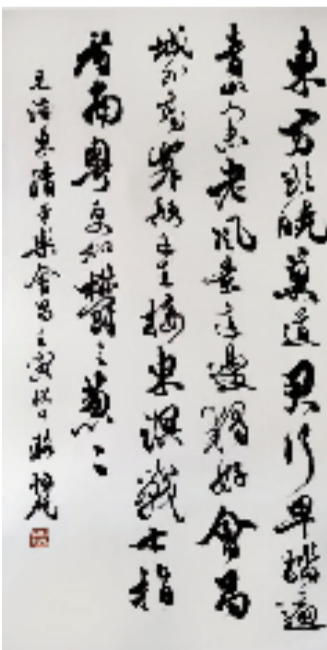 東方欲曉莫道君行早踏遍
青山人未老風景這邊獨好會昌
城外高峰顛連直接東溟戰士指
看南粵更加鬱々葱々
清平樂會昌